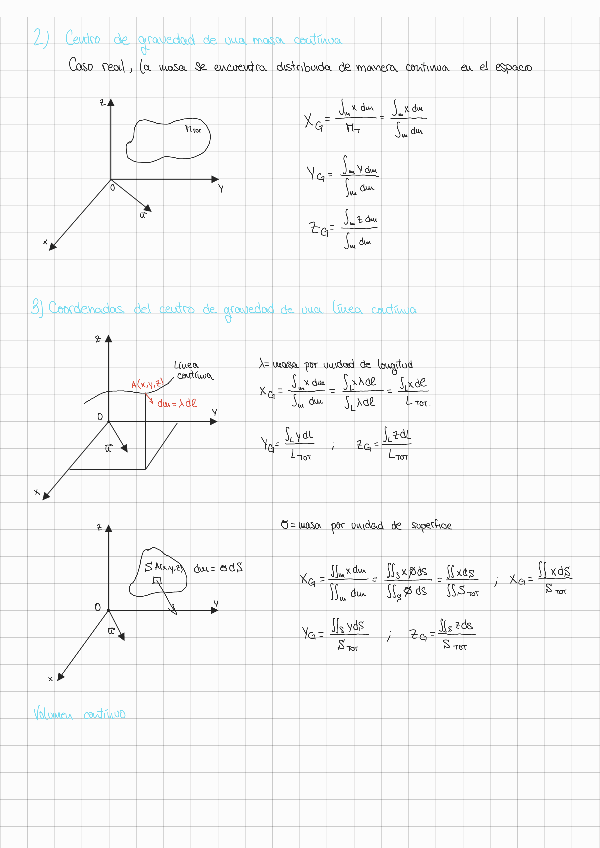 2) Centro de gravedad de una masa continua
Caso real, la masa se encuentra distribuida de manera continua en el espacio
z
M_TOT
O
Y
u
x
X_G = ∫_m x dm / M_T = ∫_m x dm / ∫_m dm
Y_G = ∫_m y dm / ∫_m dm
Z_G = ∫_m z dm / ∫_m dm
3) Coordenadas del centro de gravedad de una línea continua
z
Línea
continua
A(x,y,z)
dm = λdl
O
Y
u
x
λ = masa por unidad de longitud
X_G = ∫_m x dm / ∫_m dm = ∫_L x λdl / ∫_L λdl = ∫_L x dl / L_TOT
Y_G = ∫_L y dL / L_TOT ; Z_G = ∫_L z dL / L_TOT
z
S A(x,y,z) dm = σ dS
O
Y
u
x
σ = masa por unidad de superficie
X_G = ∬_m x dm / ∬_m dm = ∬_S x σ dS / ∬_S σ dS = ∬ x dS / ∬ S_TOT ; X_G = ∬ x dS / S_TOT
Y_G = ∬_S y dS / S_TOT ; Z_G = ∬_S z dS / S_TOT
Volumen continuo